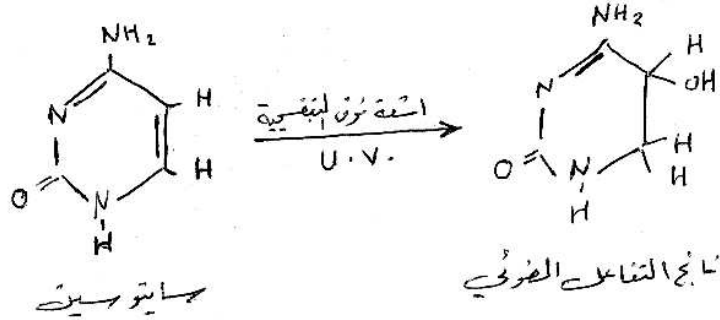 NH₂
N
H
H
O
N
H
سايتوسين
اشعة فوق البنفسجية
U.V.
NH₂
N
H
OH
H
H
O
N
H
ناتج التفاعل الضوئي